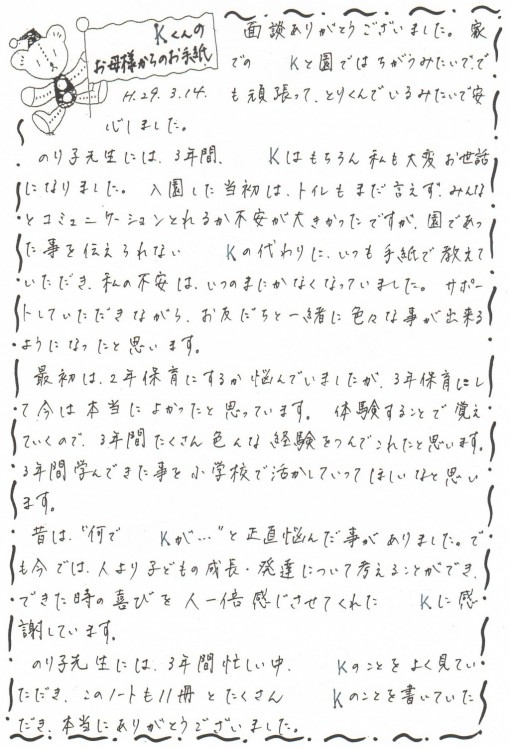 Kくんの
お母様からのお手紙
H.29.3.14.
面談ありがとうございました。家
での Kと園ではちがうみたいでで
も頑張って、とりくんでいるみたいで安
心しました。
のり子先生には、3年間、 Kはもちろん私も大変お世話
になりました。入園した当初は、トイレもまだ言えず、みんな
とコミュニケーションとれるか不安が大きかったですが、園であっ
た事を伝えられない Kの代わりに、いつも手紙で教えて
いただき、私の不安は、いつのまにかなくなっていました。サポー
トしていただきながら、お友だちと一緒に色々な事が出来る
ようになったと思います。
最初は、2年保育にするか悩んでいましたが、3年保育にし
て今は本当によかったと思っています。体験することで覚え
ていくので、3年間たくさん色んな経験をつんでこれたと思います。
3年間学んできた事を小学校で活かしていってほしいなと思い
ます。
昔は、"何で Kが…"と正直悩んだ事がありました。で
も今では、人より子どもの成長・発達について考えることができ、
できた時の喜びを人一倍感じさせてくれた Kに感
謝しています。
のり子先生には、3年間忙しい中、 Kのことをよく見てい
ただき、このノートも11冊とたくさん Kのことを書いていた
だき、本当にありがとうございました。